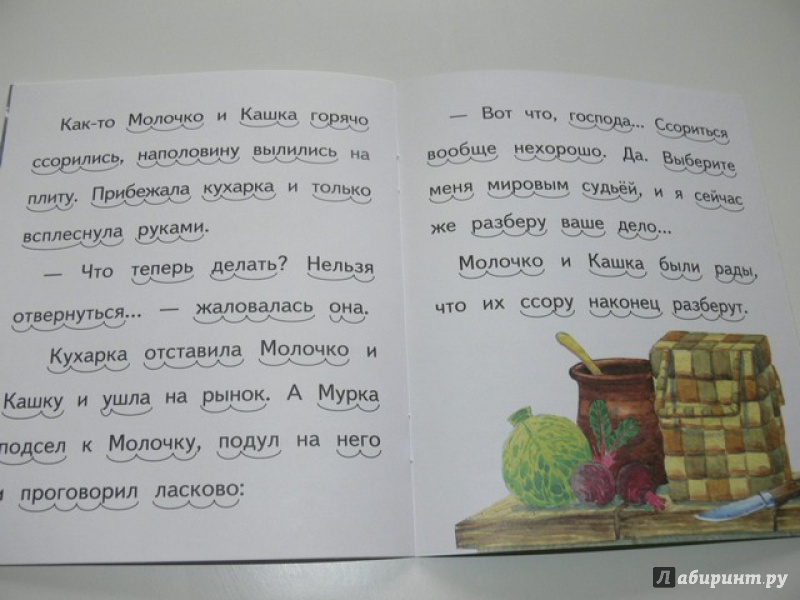 Как-то Молочко и Кашка горячо
ссорились, наполовину вылились на
плиту. Прибежала кухарка и только
всплеснула руками.
— Что теперь делать? Нельзя
отвернуться... — жаловалась она.
Кухарка отставила Молочко и
Кашку и ушла на рынок. А Мурка
подсел к Молочку, подул на него
и проговорил ласково:
— Вот что, господа... Ссориться
вообще нехорошо. Да. Выберите
меня мировым судьёй, и я сейчас
же разберу ваше дело...
Молочко и Кашка были рады,
что их ссору наконец разберут.
Лабиринт.ру